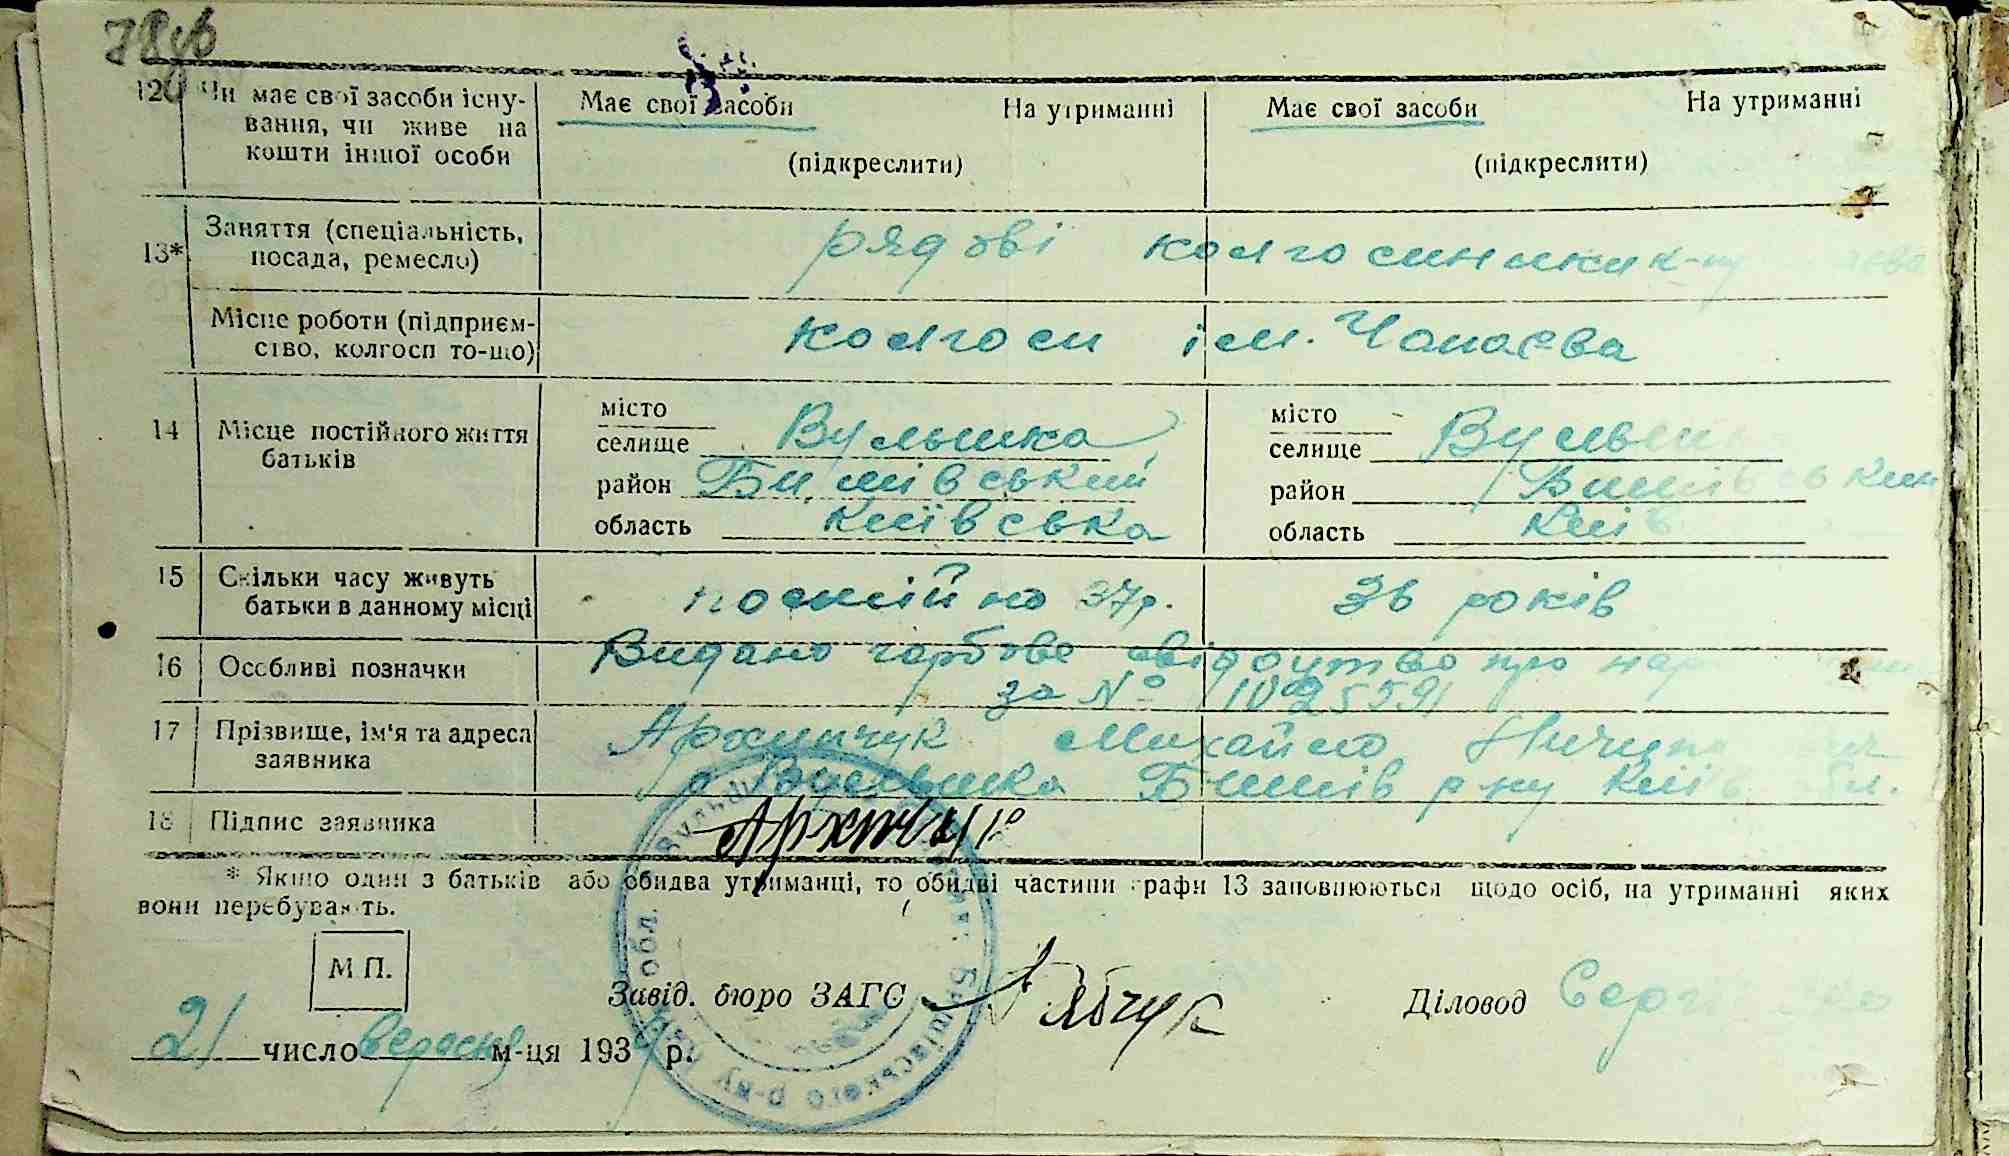 78
12 Чи має свої засоби існу- Має свої засоби На утриманні Має свої засоби На утриманні
вання, чи живе на
кошти іншої особи (підкреслити) (підкреслити)
13* Заняття (спеціальність,
посада, ремесло) рядові колгоспники к-пу
Місце роботи (підприєм-
ство, колгосп то-що) колгосп ім. Чапаєва
14 Місце постійного життя
батьків
місто місто
селище Вулешка селище
район Бишівський район Бишівський
область Київська область Київ
15 Скільки часу живуть
батьки в данному місці постійно 37р. 36 років
16 Особливі позначки Видано гарбове свідоцтво про
за №
17 Прізвище, ім'я та адреса Архипчук Михайло
заявника Бишів р-ну Київ
18 Підпис заявника Архипчук
* Якщо один з батьків або обидва утриманці, то обидві частини графи 13 заповнюються щодо осіб, на утриманні яких
вони перебувають.
М П.
Завід. бюро ЗАГС Рябчук Діловод
21 число вересня м-ця 1939 р.
Бишівського р-ну обл.